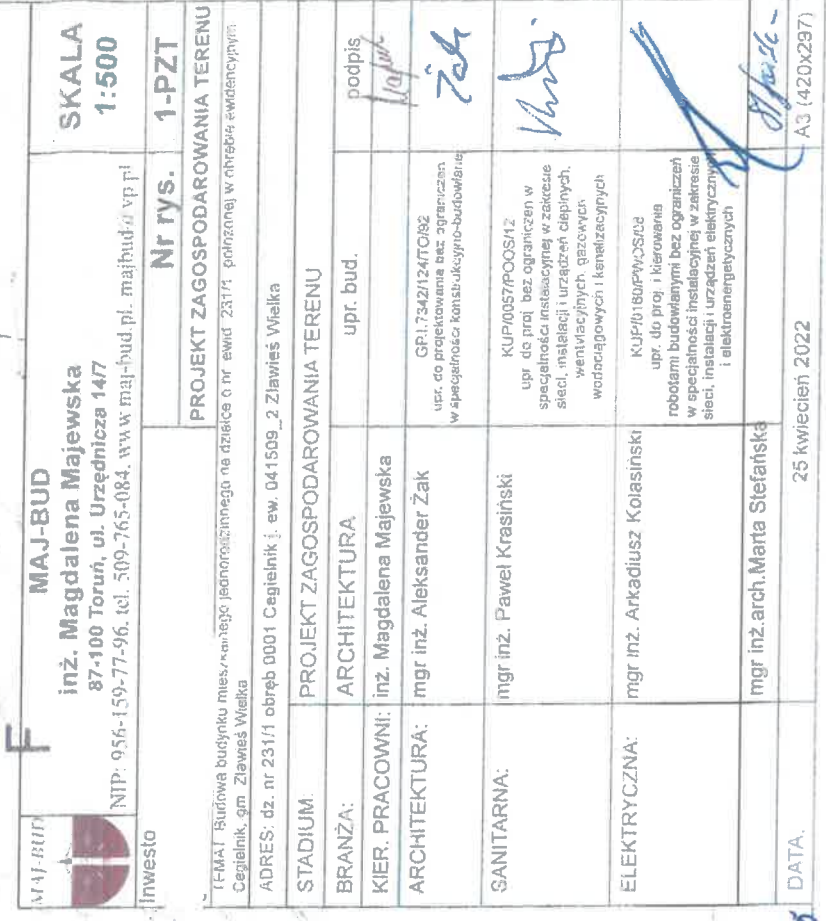 F
MAJ-BUD
MAJ-BUD
inż. Magdalena Majewska
87-100 Toruń, ul. Urzędnicza 14/7
NIP: 956-159-77-96, tel. 509-765-084. www maj-bud.pl. majbud@vp.pl
SKALA
1:500
Inwesto
Nr rys.
1-PZT
PROJEKT ZAGOSPODAROWANIA TERENU
TEMAT Budowa budynku mieszkalnego jednorodzinnego na działce o nr ewid 231/1 położonej w obrębie ewidencyjnym
Cegielnik, gm Zławieś Wielka
ADRES: dz. nr 231/1 obręb 0001 Cegielnik j. ew. 041509_2 Zławieś Wielka
STADIUM: PROJEKT ZAGOSPODAROWANIA TERENU
BRANŻA: ARCHITEKTURA upr. bud. podpis
KIER. PRACOWNI: inż. Magdalena Majewska
ARCHITEKTURA: mgr inż. Aleksander Żak
GP.I.7342/124/TO/92
upr. do projektowania bez ograniczen
w specjalności konstrukcyjno-budowlanej
SANITARNA: mgr inż. Paweł Krasiński
KUP/0057/POOS/12
upr do proj bez ograniczen w
specjalności instalacyjnej w zakresie
sieci, instalacji i urządzeń cieplnych,
wentylacyjnych, gazowych
wodociągowych i kanalizacyjnych
ELEKTRYCZNA: mgr inż. Arkadiusz Kolasiński
upr. do proj. i kierowania
robotami budowlanymi bez ograniczeń
w specjalności instalacyjnej w zakresie
sieci, instalacji i urządzeń elektrycznych
i elektroenergetycznych
mgr inż.arch.Marta Stefańska
DATA. 25 kwiecień 2022 A3 (420x297)